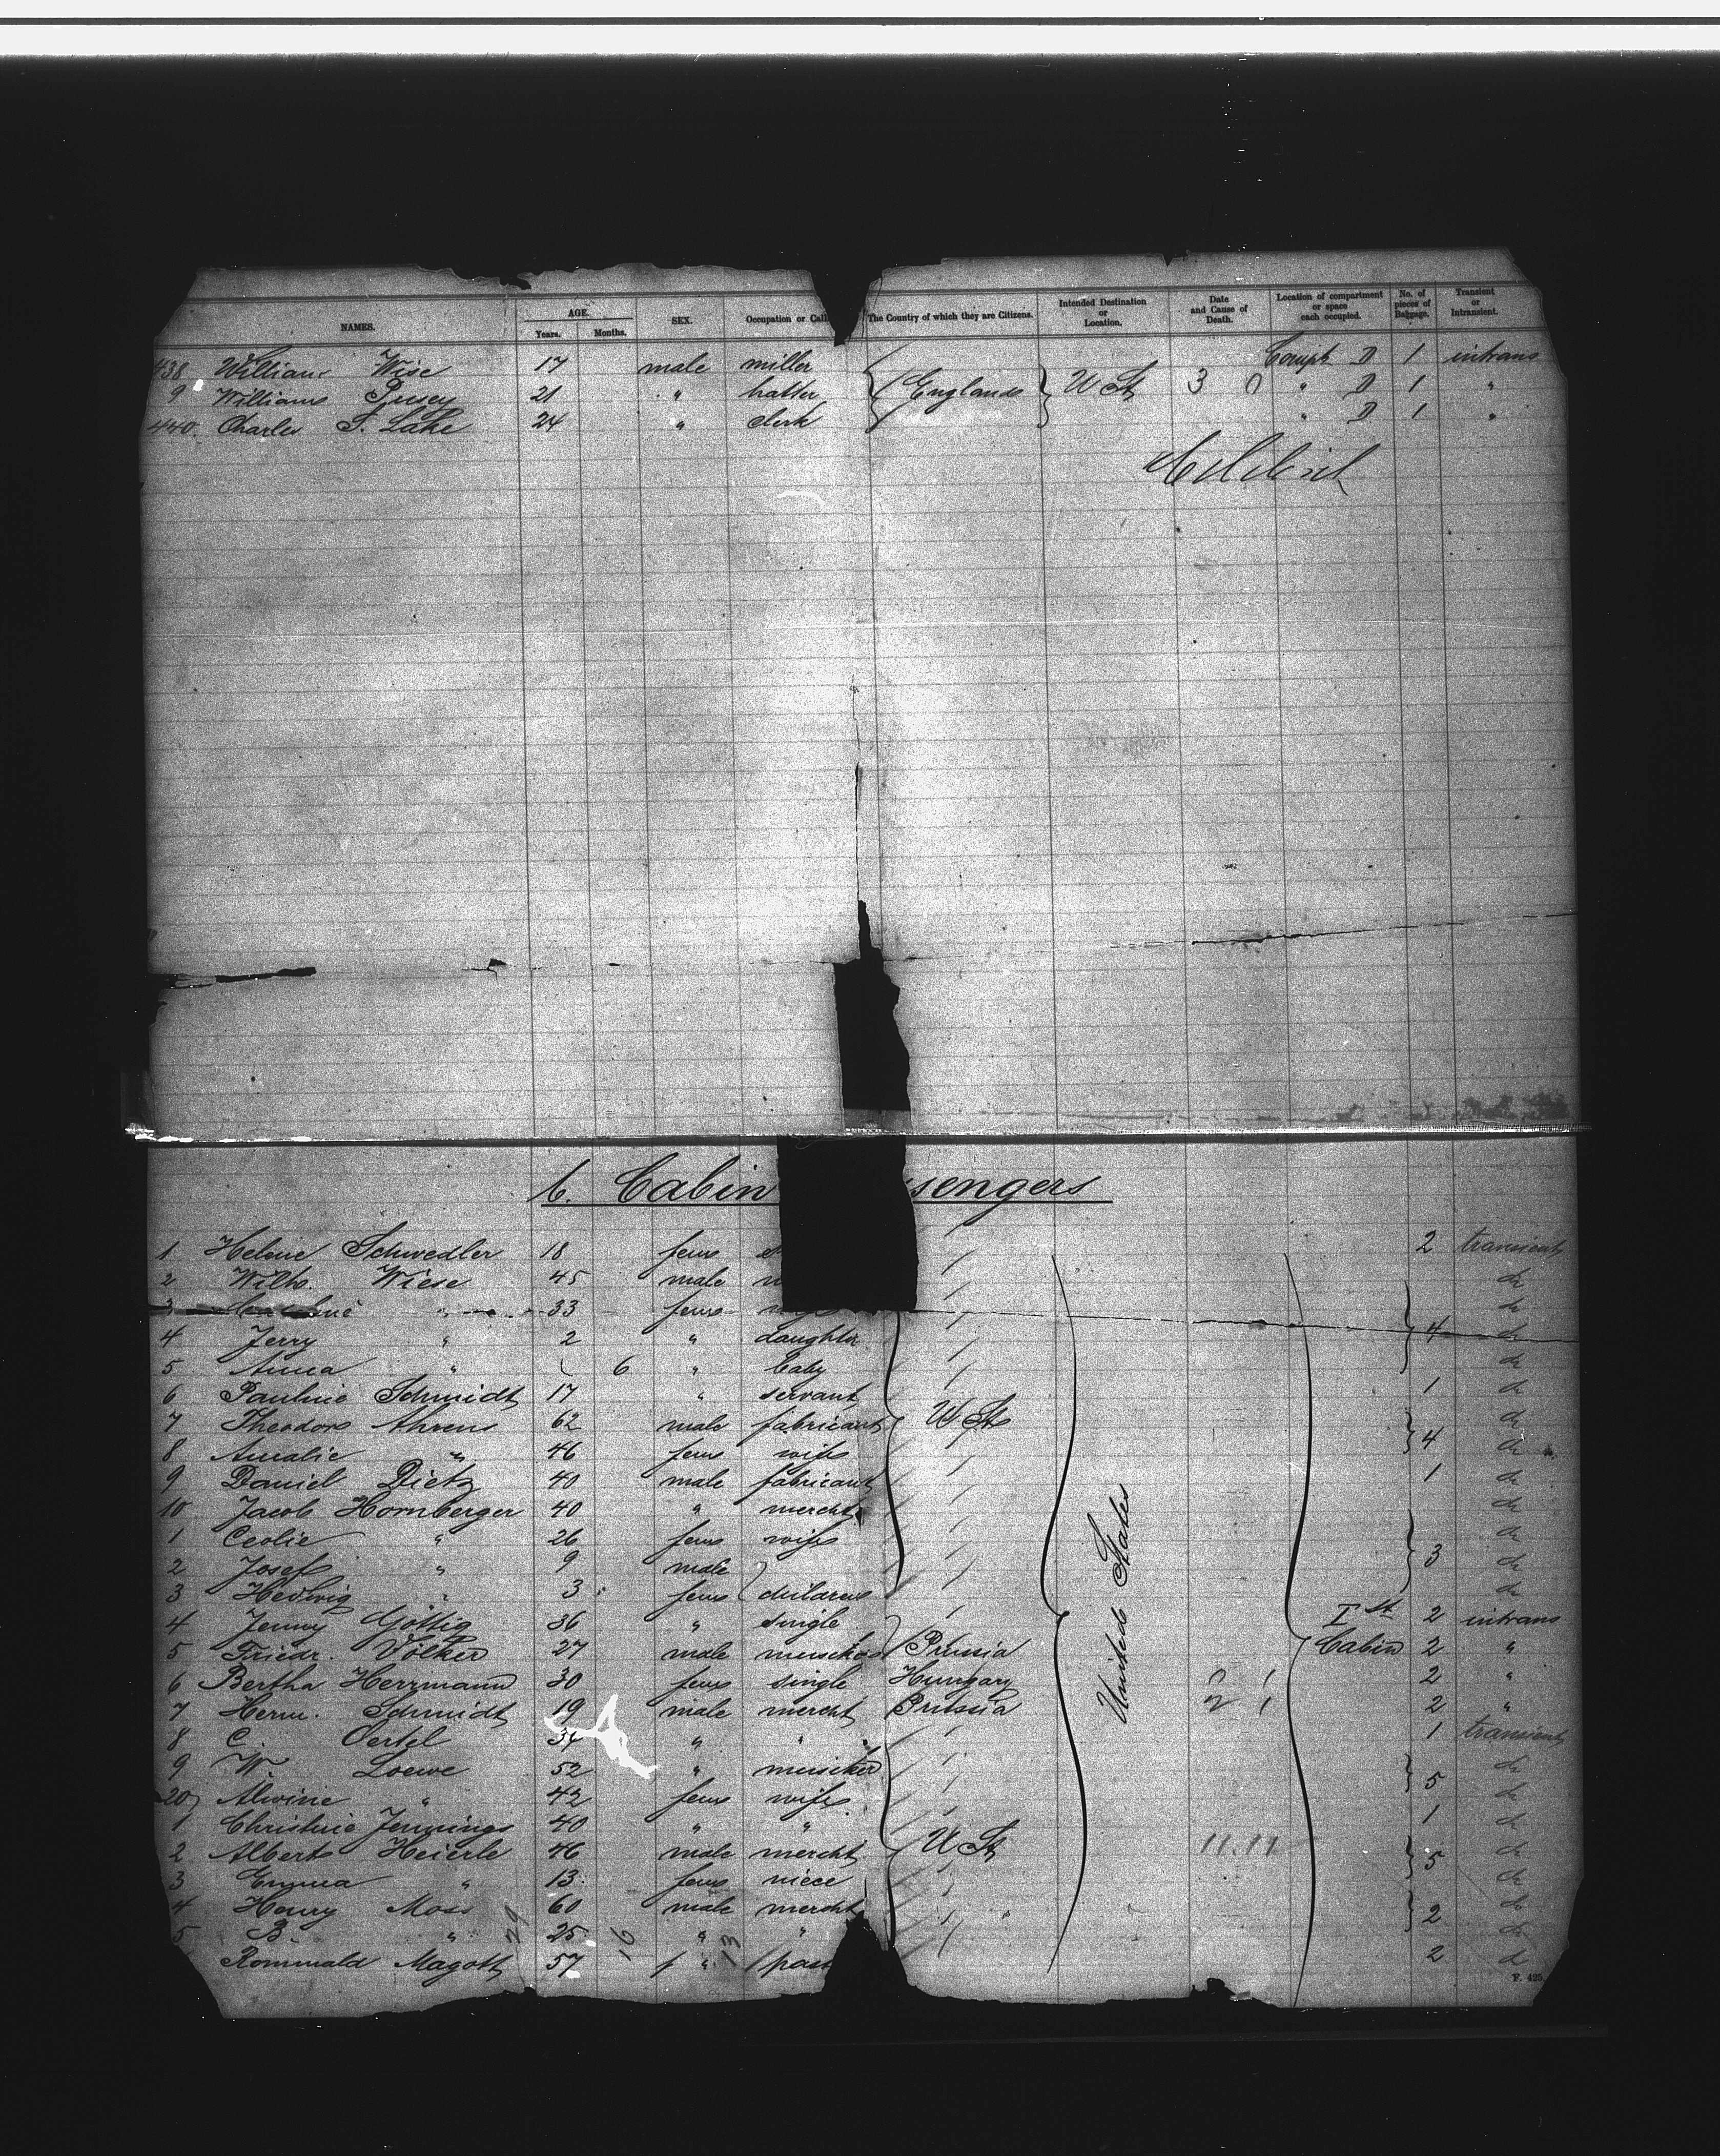 NAMES. AGE. Years. Months. SEX. Occupation or Call The Country of which they are Citizens. Intended Destination or Location. Date and Cause of Death. Location of compartment or space each occupied. No. of pieces of Baggage. Transient or Intransient.
438 William Wise 17 male miller Compt D 1 intrans
9 Williams Pusey 21 " hatter England U St 3 0 " D 1 "
440. Charles S. Lake 24 " clerk " D 1 "
b. Cabin sengers
1 Helene Schwedler 18 fem 2 transient
2 Wilh. Wiese 45 male do
3 " 33 fem do
4 Jerry " 2 " daughter 4 do
5 Anna " 6 " baby do
6 Pauline Schmidt 17 " servant 1 do
7 Theodore Ahrens 62 male fabricant U St do
8 Amalie " 46 fem wife 4 do
9 Daniel Dietz 40 male fabricant 1 do
10 Jacob Hornberger 40 " mercht do
1 Ceolie " 26 fem wife do
2 Josef " 9 male 3 do
3 Hedwig " 3 fem children do
4 Jenny Göttig 36 " single Ist 2 intrans
5 Friedr. Völker 27 male Prussia United States Cabin 2 "
6 Bertha Herrmann 30 fem single Hungary 1 2 "
7 Herm. Schmidt 19 male mercht Prussia 2 1 2 "
8 C. Oertel 34 " " 1 transient
9 W. Loewe 52 " do
20 Alwine " 42 fem wife 5 do
1 Christine Jennings 40 " " 1 do
2 Albert Heierle 46 male mercht U St 11.11 do
3 Emma " 13 fem niece 5 do
4 Henry Moss 60 male mercht do
5 B. " 25 " " 2 do
Rominald Magott 57 " past 2 do
29 16 13
F. 425